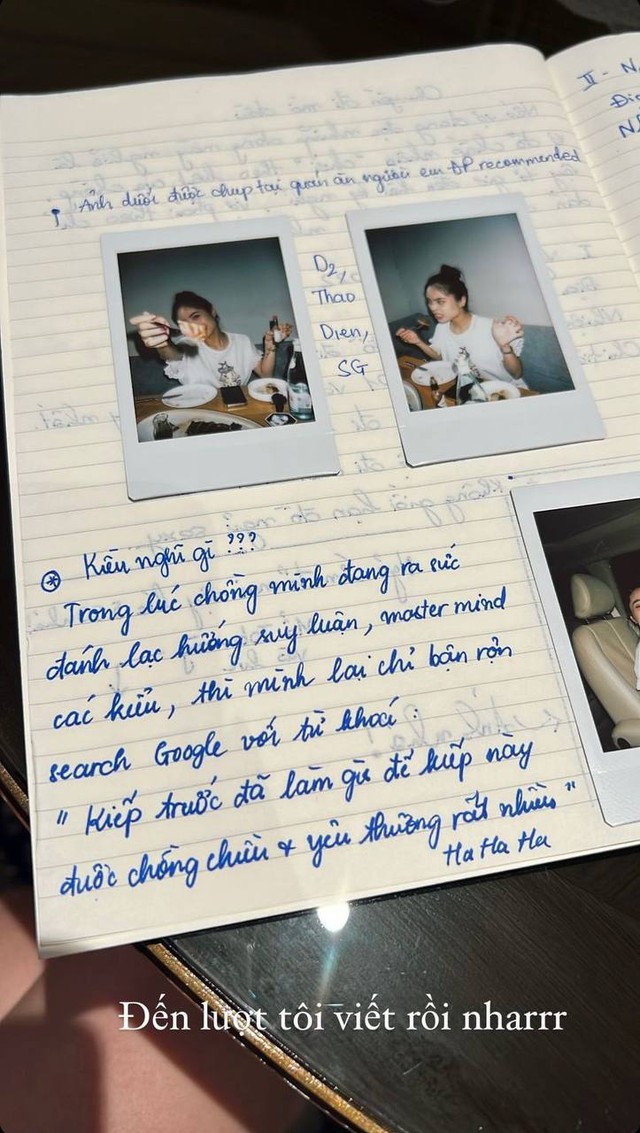 II - N
Địa
Ảnh dưới được chụp tại quán ăn người em ĐP recommended
D2,
Thao
Dien,
SG
Kiều nghĩ gì ???
Trong lúc chồng mình đang ra sức
đánh lạc hướng suy luận, master mind
các kiểu, thì mình lại chỉ bận rộn
search Google với từ khoá:
" Kiếp trước đã làm gì để kiếp này
được chồng chiều & yêu thương rất nhiều "
Ha Ha Ha
Đến lượt tôi viết rồi nharrr